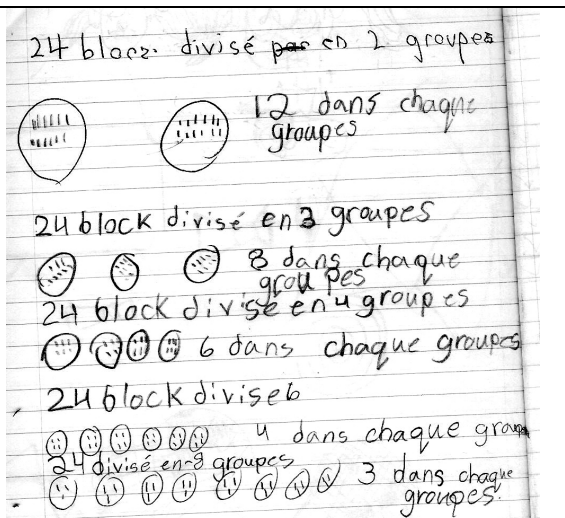 24 blocz. divisé en 2 groupes
12 dans chaque
groupes
24 block divisé en 3 groupes
8 dans chaque
groupes
24 block divisé en 4 groupes
6 dans chaque groupes
24 block divise 6
4 dans chaque group
24 divisé en 8 groupes
3 dans chaque
groupes.